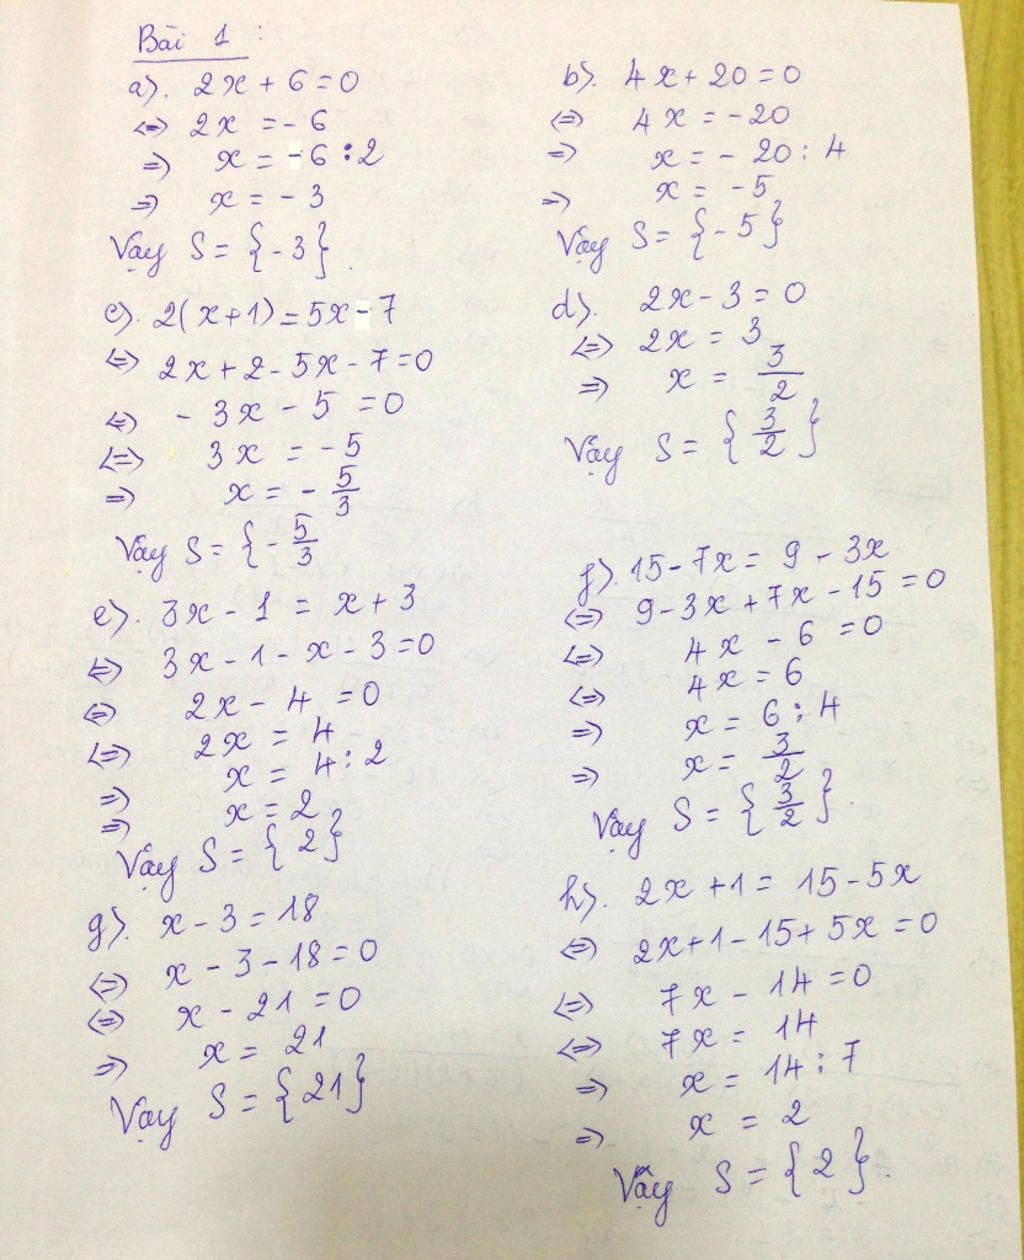 Bài 1 :
a). 2x + 6 = 0
<=> 2x = - 6
=> x = - 6 : 2
=> x = - 3
Vậy S = { - 3 } .
b). 4x + 20 = 0
<=> 4x = - 20
=> x = - 20 : 4
=> x = - 5
Vậy S = { - 5 }
c). 2(x+1) = 5x - 7
<=> 2x + 2 - 5x - 7 = 0
<=> - 3x - 5 = 0
<=> 3x = - 5
=> x = - 5/3
Vậy S = { - 5/3
d). 2x - 3 = 0
<=> 2x = 3
=> x = 3/2
Vậy S = { 3/2 }
e). 3x - 1 = x + 3
<=> 3x - 1 - x - 3 = 0
<=> 2x - 4 = 0
<=> 2x = 4
=> x = 4 : 2
=> x = 2
Vậy S = { 2 }
f). 15 - 7x = 9 - 3x
<=> 9 - 3x + 7x - 15 = 0
<=> 4x - 6 = 0
<=> 4x = 6
=> x = 6 : 4
=> x = 3/2
Vậy S = { 3/2 } .
g). x - 3 = 18
<=> x - 3 - 18 = 0
<=> x - 21 = 0
=> x = 21
Vậy S = { 21 }
h). 2x + 1 = 15 - 5x
<=> 2x + 1 - 15 + 5x = 0
<=> 7x - 14 = 0
<=> 7x = 14
=> x = 14 : 7
=> x = 2
Vậy S = { 2 } .